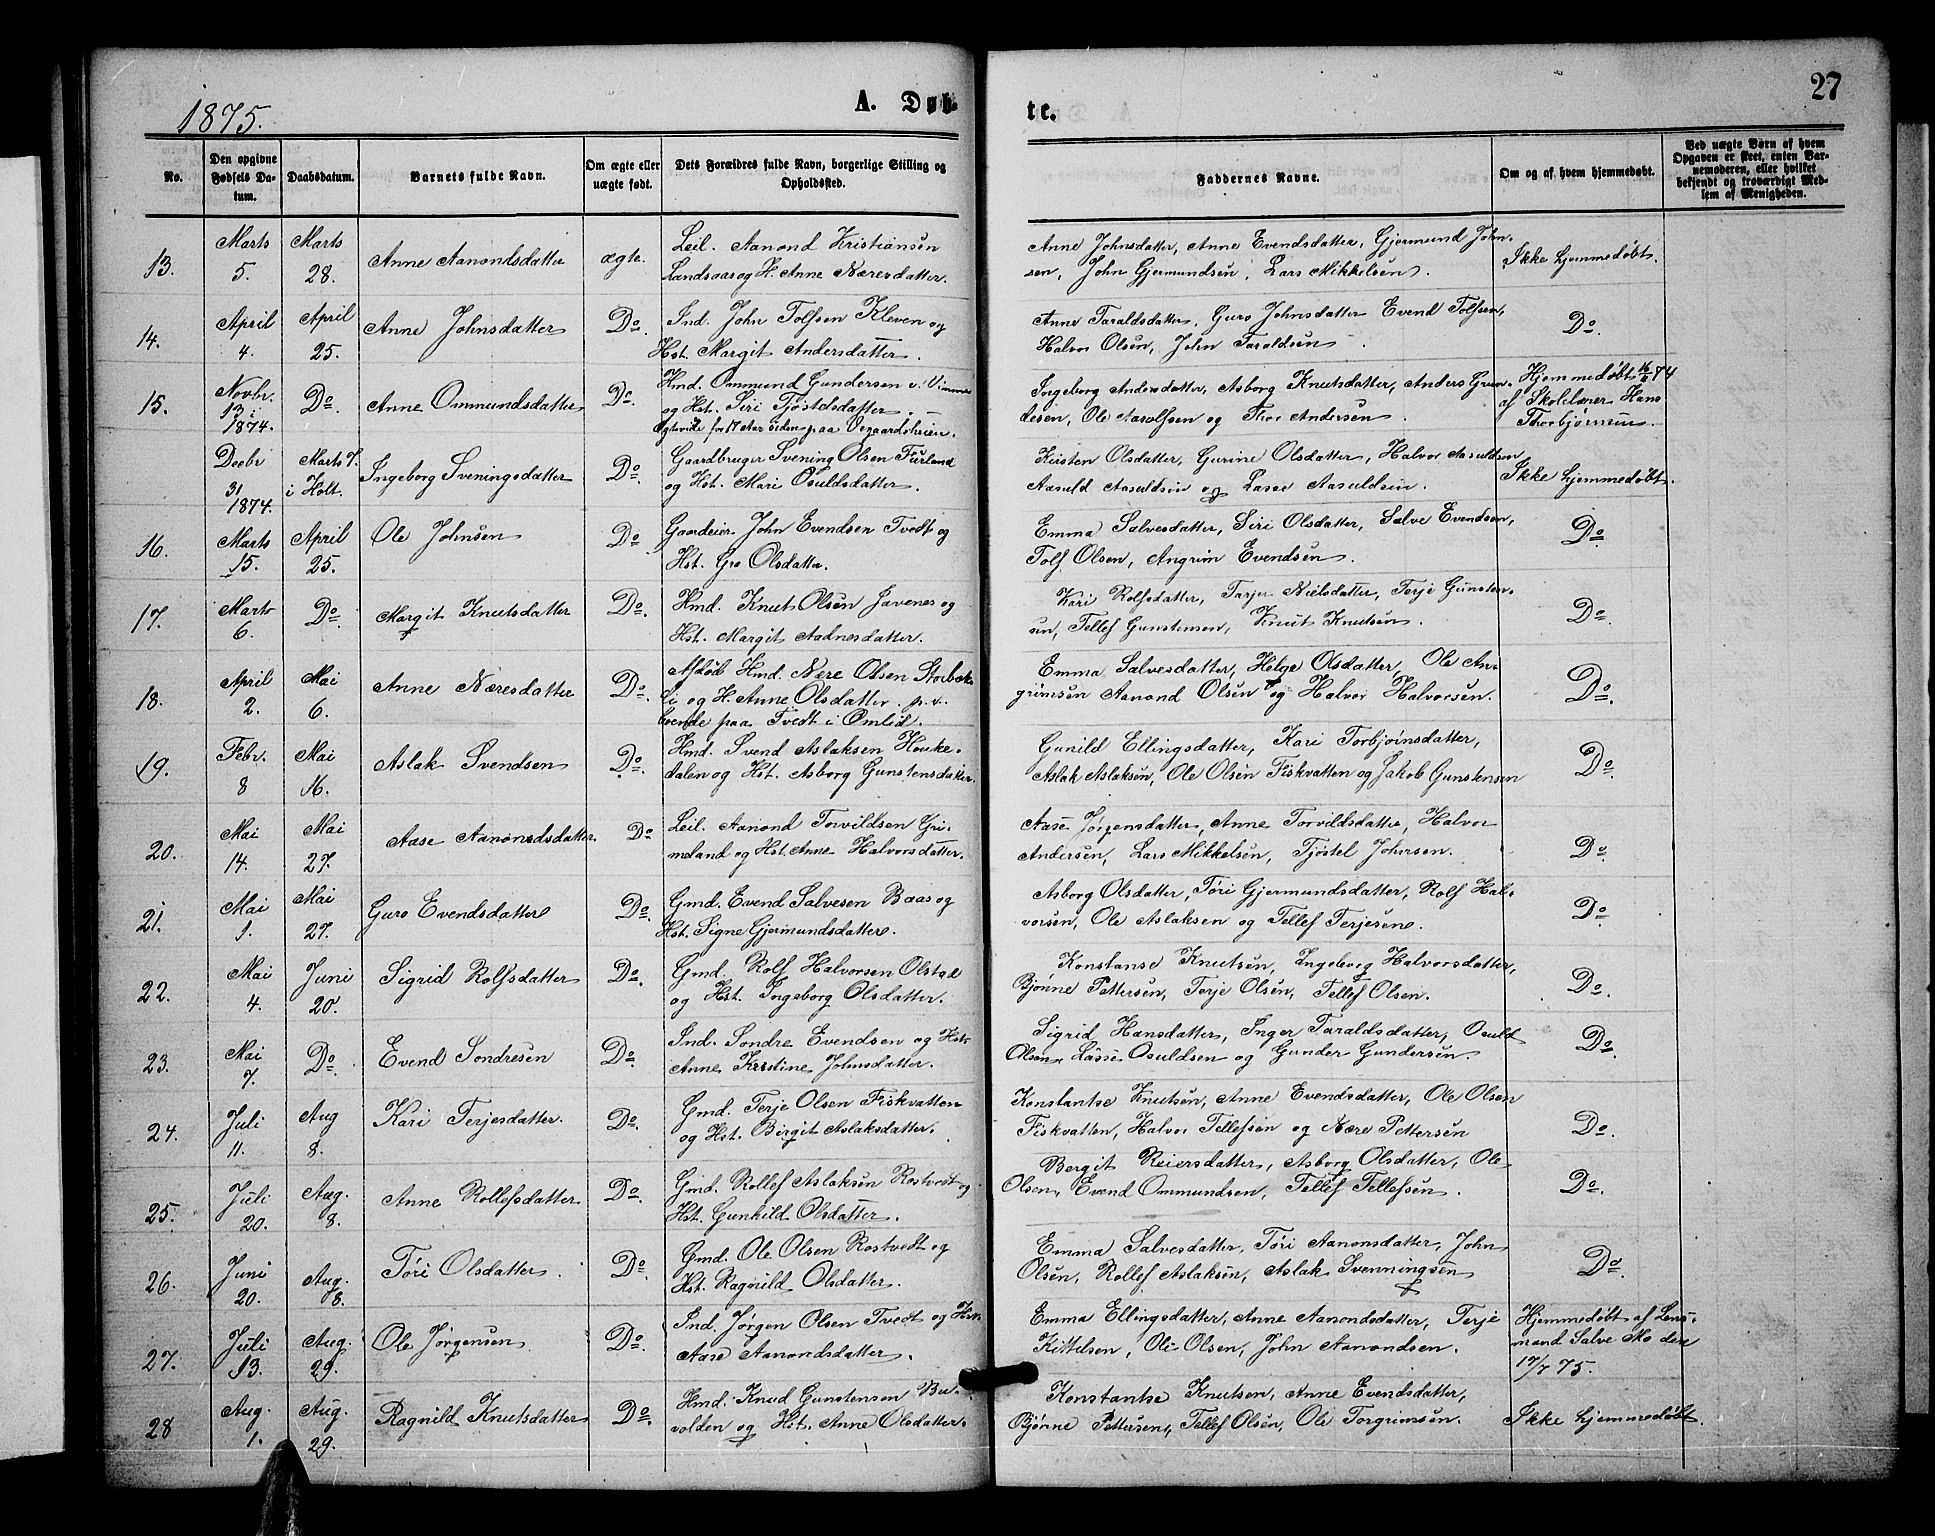 1875.
A. Døb-
te.
27
No.
Den opgivne Fødsels Datum.
Daabsdatum.
Barnets fulde Navn.
Om ægte eller uægte født.
Dets Forældres fulde Navn, borgerlige Stilling og Opholdssted.
Faddernes Navne.
Om og af hvem hjemmedøbt.
Ved uægte Børn af hvem Opgaven er skeet, enten Barnemoderen, eller hvilket bekjendt og troværdigt Medlem af Menigheden.
13. Marts 5. Marts 28. Anne Aanondsdatter ægte. Leil. Aanond Kristiansen
Lundsaas og H. Anne Næresdatter.
Anne Johnsdatter, Anne Evendsdatter, Gjermund John-
sen, John Gjermundsen, Lars Mikkelsen. Ikke hjemmedøbt.
14. April 4. April 25. Anne Johnsdatter Do. Ind. John Tolfsen Kleven og
Hst. Margit Andersdatter.
Anne Taraldsdatter, Guro Johnsdatter Evend Tolfsen,
Halvor Olsen, John Taraldsen. Do.
15. Novbr. 13 i 1874. Do. Anne Ommundsdatter Do. Hmd. Ommund Gundersen v. Vimme
og Hst. Siri Tjøstelsdatter.
Ægteviede for 17 Aar siden paa Vegaardsheien.
Ingeborg Andersdatter, Asborg Knutsdatter, Anders Gun-
desen, Ole Aasolfsen og Thor Andersen.
Hjemmedøbt 74
af Skolelærer Hans
Thorbjørnsen.
Decbr 31 1874. Marts 7. i Holt. Ingeborg Sveningsdatter Do. Gaardbruger Svening Olsen Furland
og Hst. Mari Osuldsdatter.
Kirsten Olsdatter, Gurine Olsdatter, Halvor Aasuldsen
Aasuld Aasuldsen og Lasse Aasuldsen. Ikke hjemmedøbt.
16. Marts 15. April 25. Ole Johnsen Do. Gaardeier John Evendsen Tvedt og
Hst. Gro Olsdatter.
Emma Salvesdatter, Siri Olsdatter, Salve Evendsen,
Tolf Olsen, Angrim Evendsen. Do.
17. Marts 6. Do. Margit Knutsdatter Do. Hmd. Knut Olsen Javenes og
Hst. Margit Aadnesdatter.
Kari Rolfsdatter, Tarjer Nielsdatter, Terje Gunsten-
sen, Tellef Gunstensen, Knut Knutsen. Do.
18. April 2. Mai 6. Anne Næresdatter Do. Afdød Hmd. Nære Olsen Storbæk-
li og H. Anne Olsdatter. p. t.
boende paa Tvedt i Omlid.
Emma Salvesdatter, Helge Olsdatter, Ole An-
grimsen Aanond Olsen og Halvor Halvorsen. Do.
19. Febr. 8 Mai 16. Aslak Svendsen Do. Hmd. Svend Aslaksen Houke-
dalen og Hst. Asborg Gunstensdatter.
Gunild Ellingsdatter, Kari Torbjørnsdatter,
Aslak Aslaksen, Ole Olsen Fiskvatten og Jakob Gunstensen Do.
20. Mai 14. Mai 27. Aase Aanondsdatter. Do. Leil. Aanond Torvildsen Gri-
meland og Hst. Anne Halvorsdatter.
Aase Jørgensdatter, Anne Torvildsdatter, Halvor
Andersen, Lars Mikkelsen, Tjøstel Johnsen. Do.
21. Mai 1. Mai 27. Guro Evendsdatter Do. Gmd. Evend Salvesen Baas og
Hst. Signe Gjermundsdatter.
Asborg Olsdatter, Tøri Gjermundsdatter, Rolf Hal-
vorsen, Ole Aslaksen og Tellef Terjesen. Do.
22. Mai 4. Juni 20. Sigrid Rolfsdatter Do. Gmd. Rolf Halvorsen Olstad
og Hst. Ingeborg Olsdatter.
Konstanse Knutsen, Ingeborg Halvorsdatter,
Bjønne Pettersen, Terje Olsen, Tellef Olsen. Do.
23. Mai 7. Do. Evend Sondresen Do. Ind. Sondre Evendsen og Hst.
Anne Kristine Johnsdatter.
Sigrid Hansdatter, Inger Taraldsdatter, Osuld
Olsen, Lasse Osuldsen og Gunder Gundersen. Do.
24. Juli 11. Aug 8. Kari Terjesdatter. Do. Gmd. Terje Olsen Fiskvatten
og Hst. Birgit Aslaksdatter.
Konstantse Knutsen, Anne Evendsdatter, Ole Olsen
Fiskvatten, Halvor Tellefsen og Nære Pettersen Do.
25. Juli 20. Aug. 8. Anne Rollefsdatter Do. Gmd. Rollef Aslaksen Rostvedt og
Hst. Gunhild Olsdatter.
Bergit Reiersdatter, Asborg Olsdatter, Ole
Olsen, Evend Ommundsen, Tellef Tellefsen. Do.
26. Juni 20. Aug. 8. Tøri Olsdatter. Do. Gmd. Ole Olsen Rostvedt og
Hst. Ragnild Olsdatter.
Emma Salvesdatter, Tøri Aanonsdatter, John
Olsen, Rollef Aslaksen, Aslak Svenningsen Do.
27. Juli 13. Aug. 29. Ole Jørgensen Do. Ind. Jørgen Olsen Tvedt og Hst.
Aase Aanondsdatter.
Emma Ellingsdatter, Anne Aanondsdatter, Terje
Kittelsen, Ole Olsen, John Aanondsen.
Hjemmedøbt af Lens-
mand Salve Mo den
17/7 75.
28 Aug. 1. Aug. 29. Ragnild Knutsdatter Do. Hmd. Knud Gunstensen Bu-
volden og Hst. Anne Olsdatter.
Konstantse Knutsen, Anne Evendsdatter,
Bjønne Pettersen, Tellef Olsen, Ole Torgrimsen. Ikke hjemmedøbt.